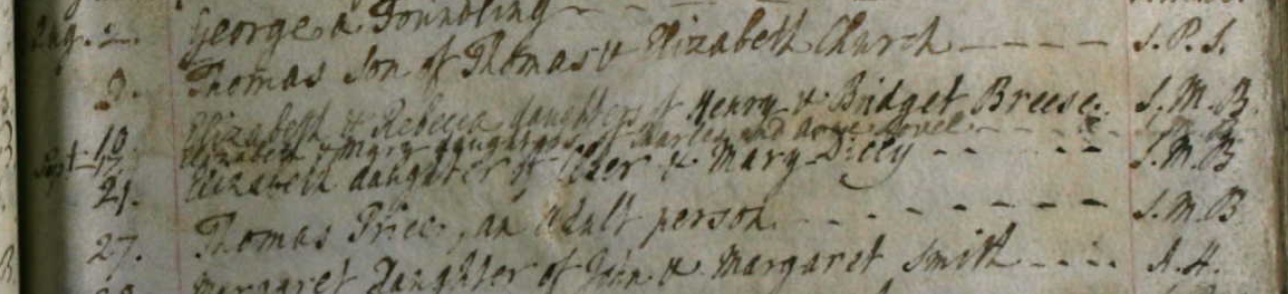 Aug. 2. George a Foundling
3. Thomas Son of Thomas & Elizabeth Church S. P. S.
Elizabeth & Rebecca daughters of Henry & Bridget Breese. S. M. B.
Sept 10 Elizabeth & Mary daughters of Charles and
Elizabeth daughter of & Mary S. M. B
21. Thomas Price, an adult person S. M. B
27. Margaret daughter of John & Margaret Smith A. H.